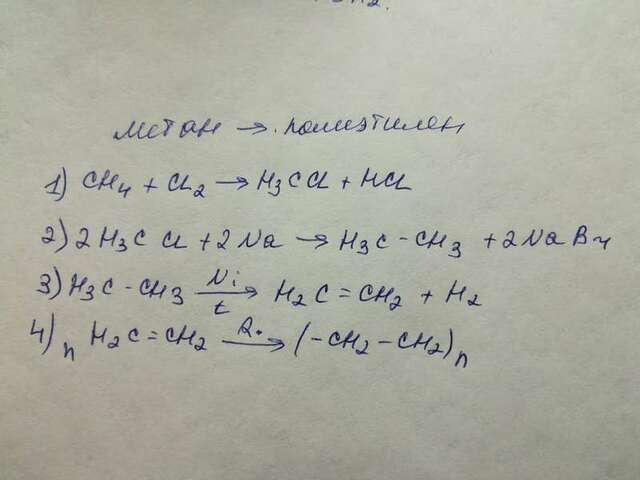 метан → полиэтилен
1) CH4 + Cl2 → H3CCl + HCl
2) 2H3CCl + 2Na → H3C-CH3 + 2NaBr
3) H3C-CH3 Ni t → H2C=CH2 + H2
4) n H2C=CH2 R• → (-CH2-CH2)n